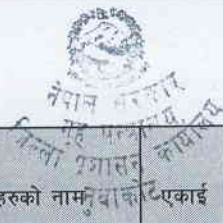 नेपाल सरकार
गृह मन्त्रालय
जिल्ला प्रशासन कार्यालय
नुवाकोट
हरुको नाम
एकाई